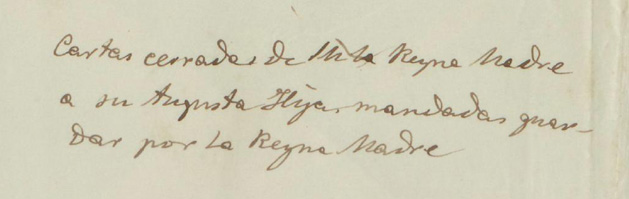 Cartas cerradas de la Reyna Madre
a su Augusta Hija, mandadas guar-
dar por la Reyna Madre